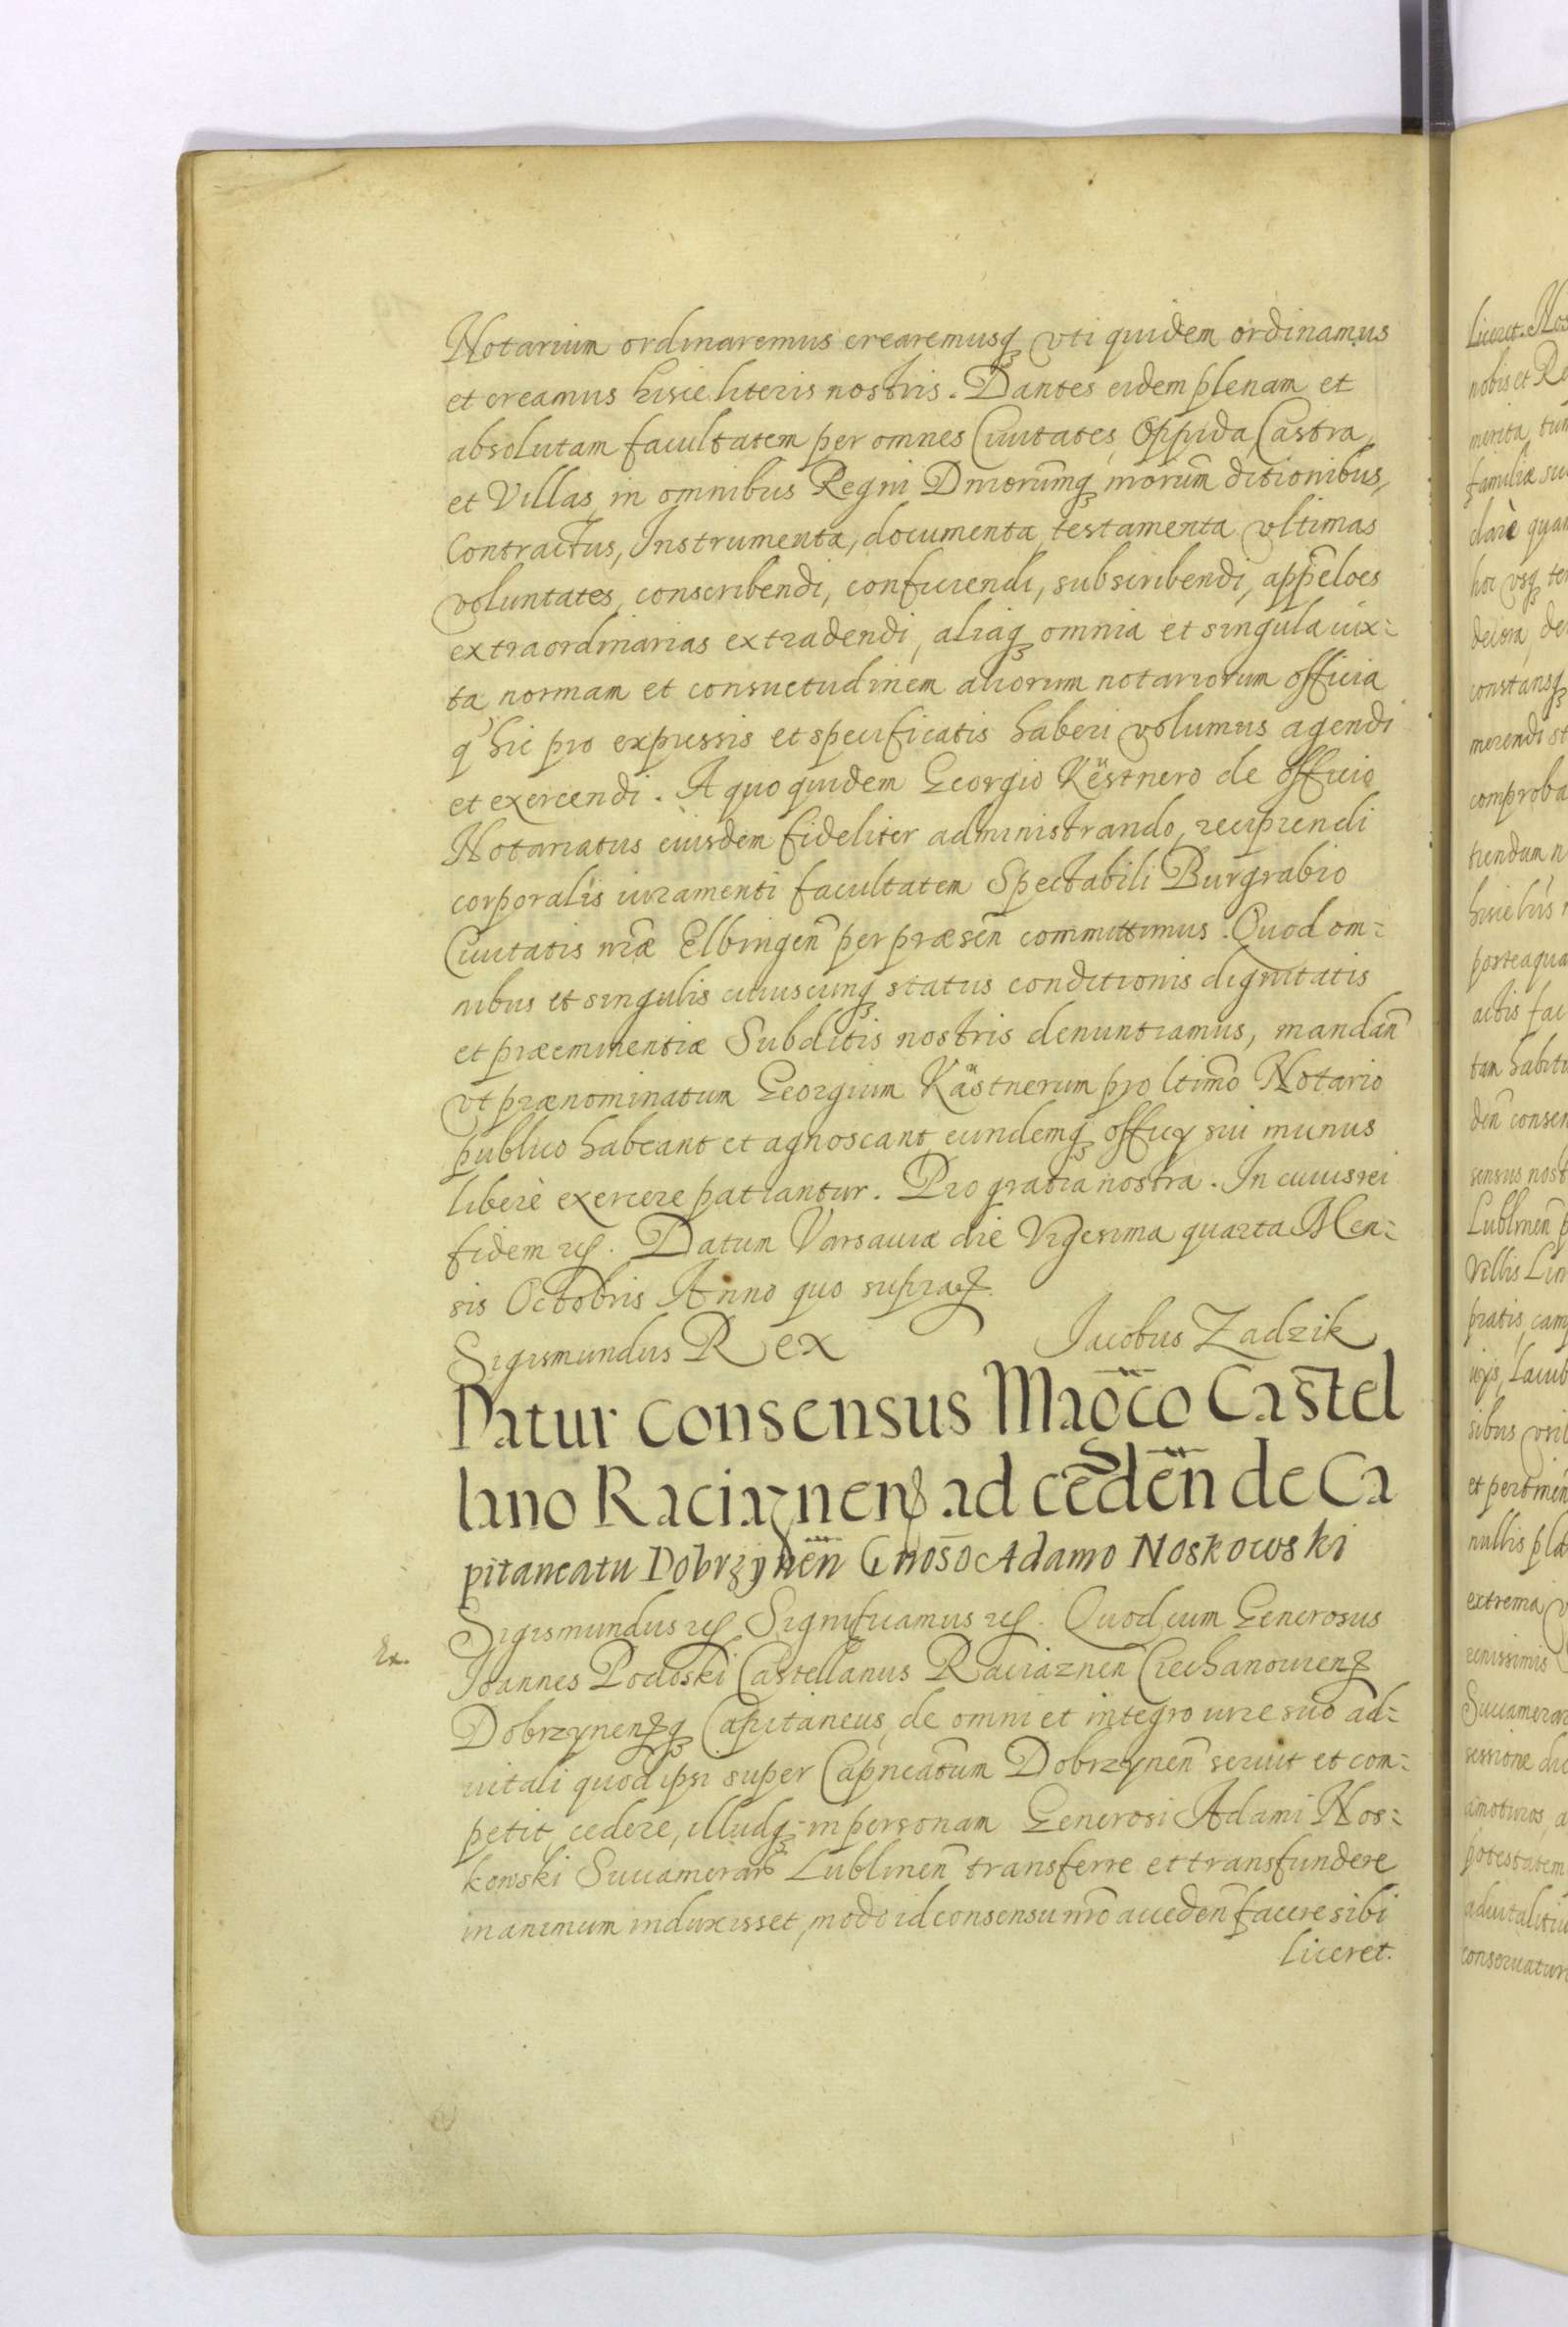 Notarium ordinaremus crearemusq̃ vti quidem ordinamus
et creamus hisce literis nostris. Dantes eidem plenam et
absolutam facultatem per omnes Ciuitates, Oppida, Castra,
et Villas, in omnibus Regni Dniorūmq̃ nrorūm ditionibus,
Contractus, Instrumenta, documenta, testamenta vltimas
voluntates, conscribendi, conficiendi, subscribendi, appēloes
extraordinarias extradendi, aliaq̃ omnia et singula iux:
ta normam et consuetudinem aliorum notariorum officia
q̃ hic pro expressis et specificatis haberi volumus agendi
et exercendi. A quo quidem Georgio Këstnero de officio
Notariatus eiusdem fideliter administrando, recipiendi
corporalis iuramenti facultatem Spectabili Burgrabio
Ciuitatis nrāe Elbingen̄ per præsen̄ committimus. Quod om:
nibus et singulis cuiuscunq̃ status conditionis dignitatis
et præeminentiæ Subditis nostris denuntiamus, mandan̄
vt prænominatum Georgium Kästnerum pro ltimō Notario
publico habeant et agnoscant eundemq̃ officij sui munus
liberè exercere patiantur. Pro gratia nostra. In cuius rei
fidem etc. Datum Varsauiæ die Vigesima quarta Men:
sis Octobris Anno quo supra
Sigismundus Rex Jacobus Zadzik
Datur consensus Mag̃co Castel
lano Raciąznen ad cēdēn de Ca
pitaneatu Dobrzynēn Gnōso Adamo Noskowski
Sigismundus etc Significamus etc. Quod cum Generosus
Ex.
Joannes Podoski Castellanus Raciaznen̄ Ciechanouien
Dobrzynenq̃ Capitaneus, de omni et integro iure suo ad:
uitali quod ipsi super Capneatūm Dobrzynen̄ seruit et com:
petit, cedere, illudq̃ in personam Generosi Adami Nos:
kowski Succamerarij Lublinen̄ transferre et transfundere
in animum induxisset, modo id consensu nrō acceden̄ facere sibi
liceret.